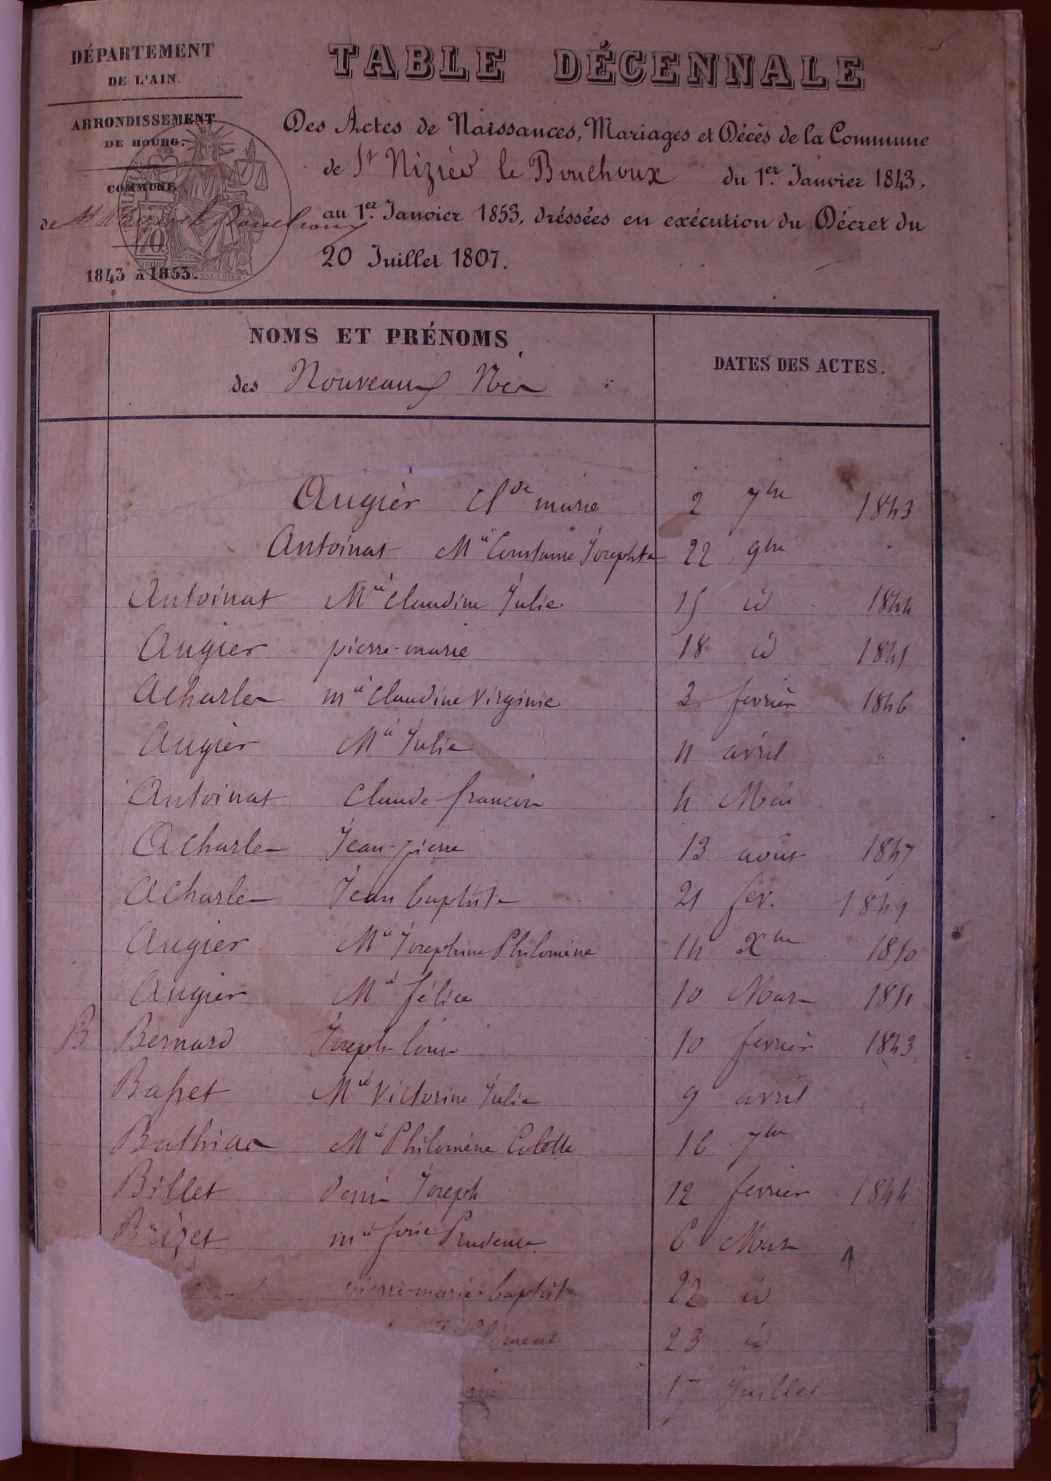 DÉPARTEMENT
DE L'AIN.
ARRONDISSEMENT
DE BOURG.
COMMUNE
de
1843 à 1853.
TABLE DÉCENNALE
Des Actes de Naissances, Mariages et Décès de la Commune
de St Nizier le Bouchoux du 1er. Janvier 1843.
au 1er. Janvier 1853, dréssées en exécution du Décret du
20 Juillet 1807.
NOMS ET PRÉNOMS
des Nouveaux Nés
DATES DES ACTES.
Augier Clde marie 2 7bre 1843
Antoinat Mie Constance Josephte 22 9bre
Antoinat Mie Claudine Julie 15 id 1844
Augier pierre-marie 18 id 1845
Acharles mie Claudine Virginie 2 fevrier 1846
Augier Mie Julie 11 avril
Antoinat Claude-françois 4 Mai
Acharles Jean-pierre 13 août 1847
Acharles Jean baptiste 21 fév. 1849
Augier Mie Josephine Philomène 14 Xbre 1850
Augier Mie félise 10 Mars 1851
B Bernard Joseph louis 10 fevrier 1843
Basset Mie Victorine Julie 9 avril
Bathias Mie Philomène Colette 16 7bre
Billet denis Joseph 12 fevrier 1844
Brizet mie Prudence 6 Mars
pierre-marie-baptiste 22 id
Clément 23 id
Juillet